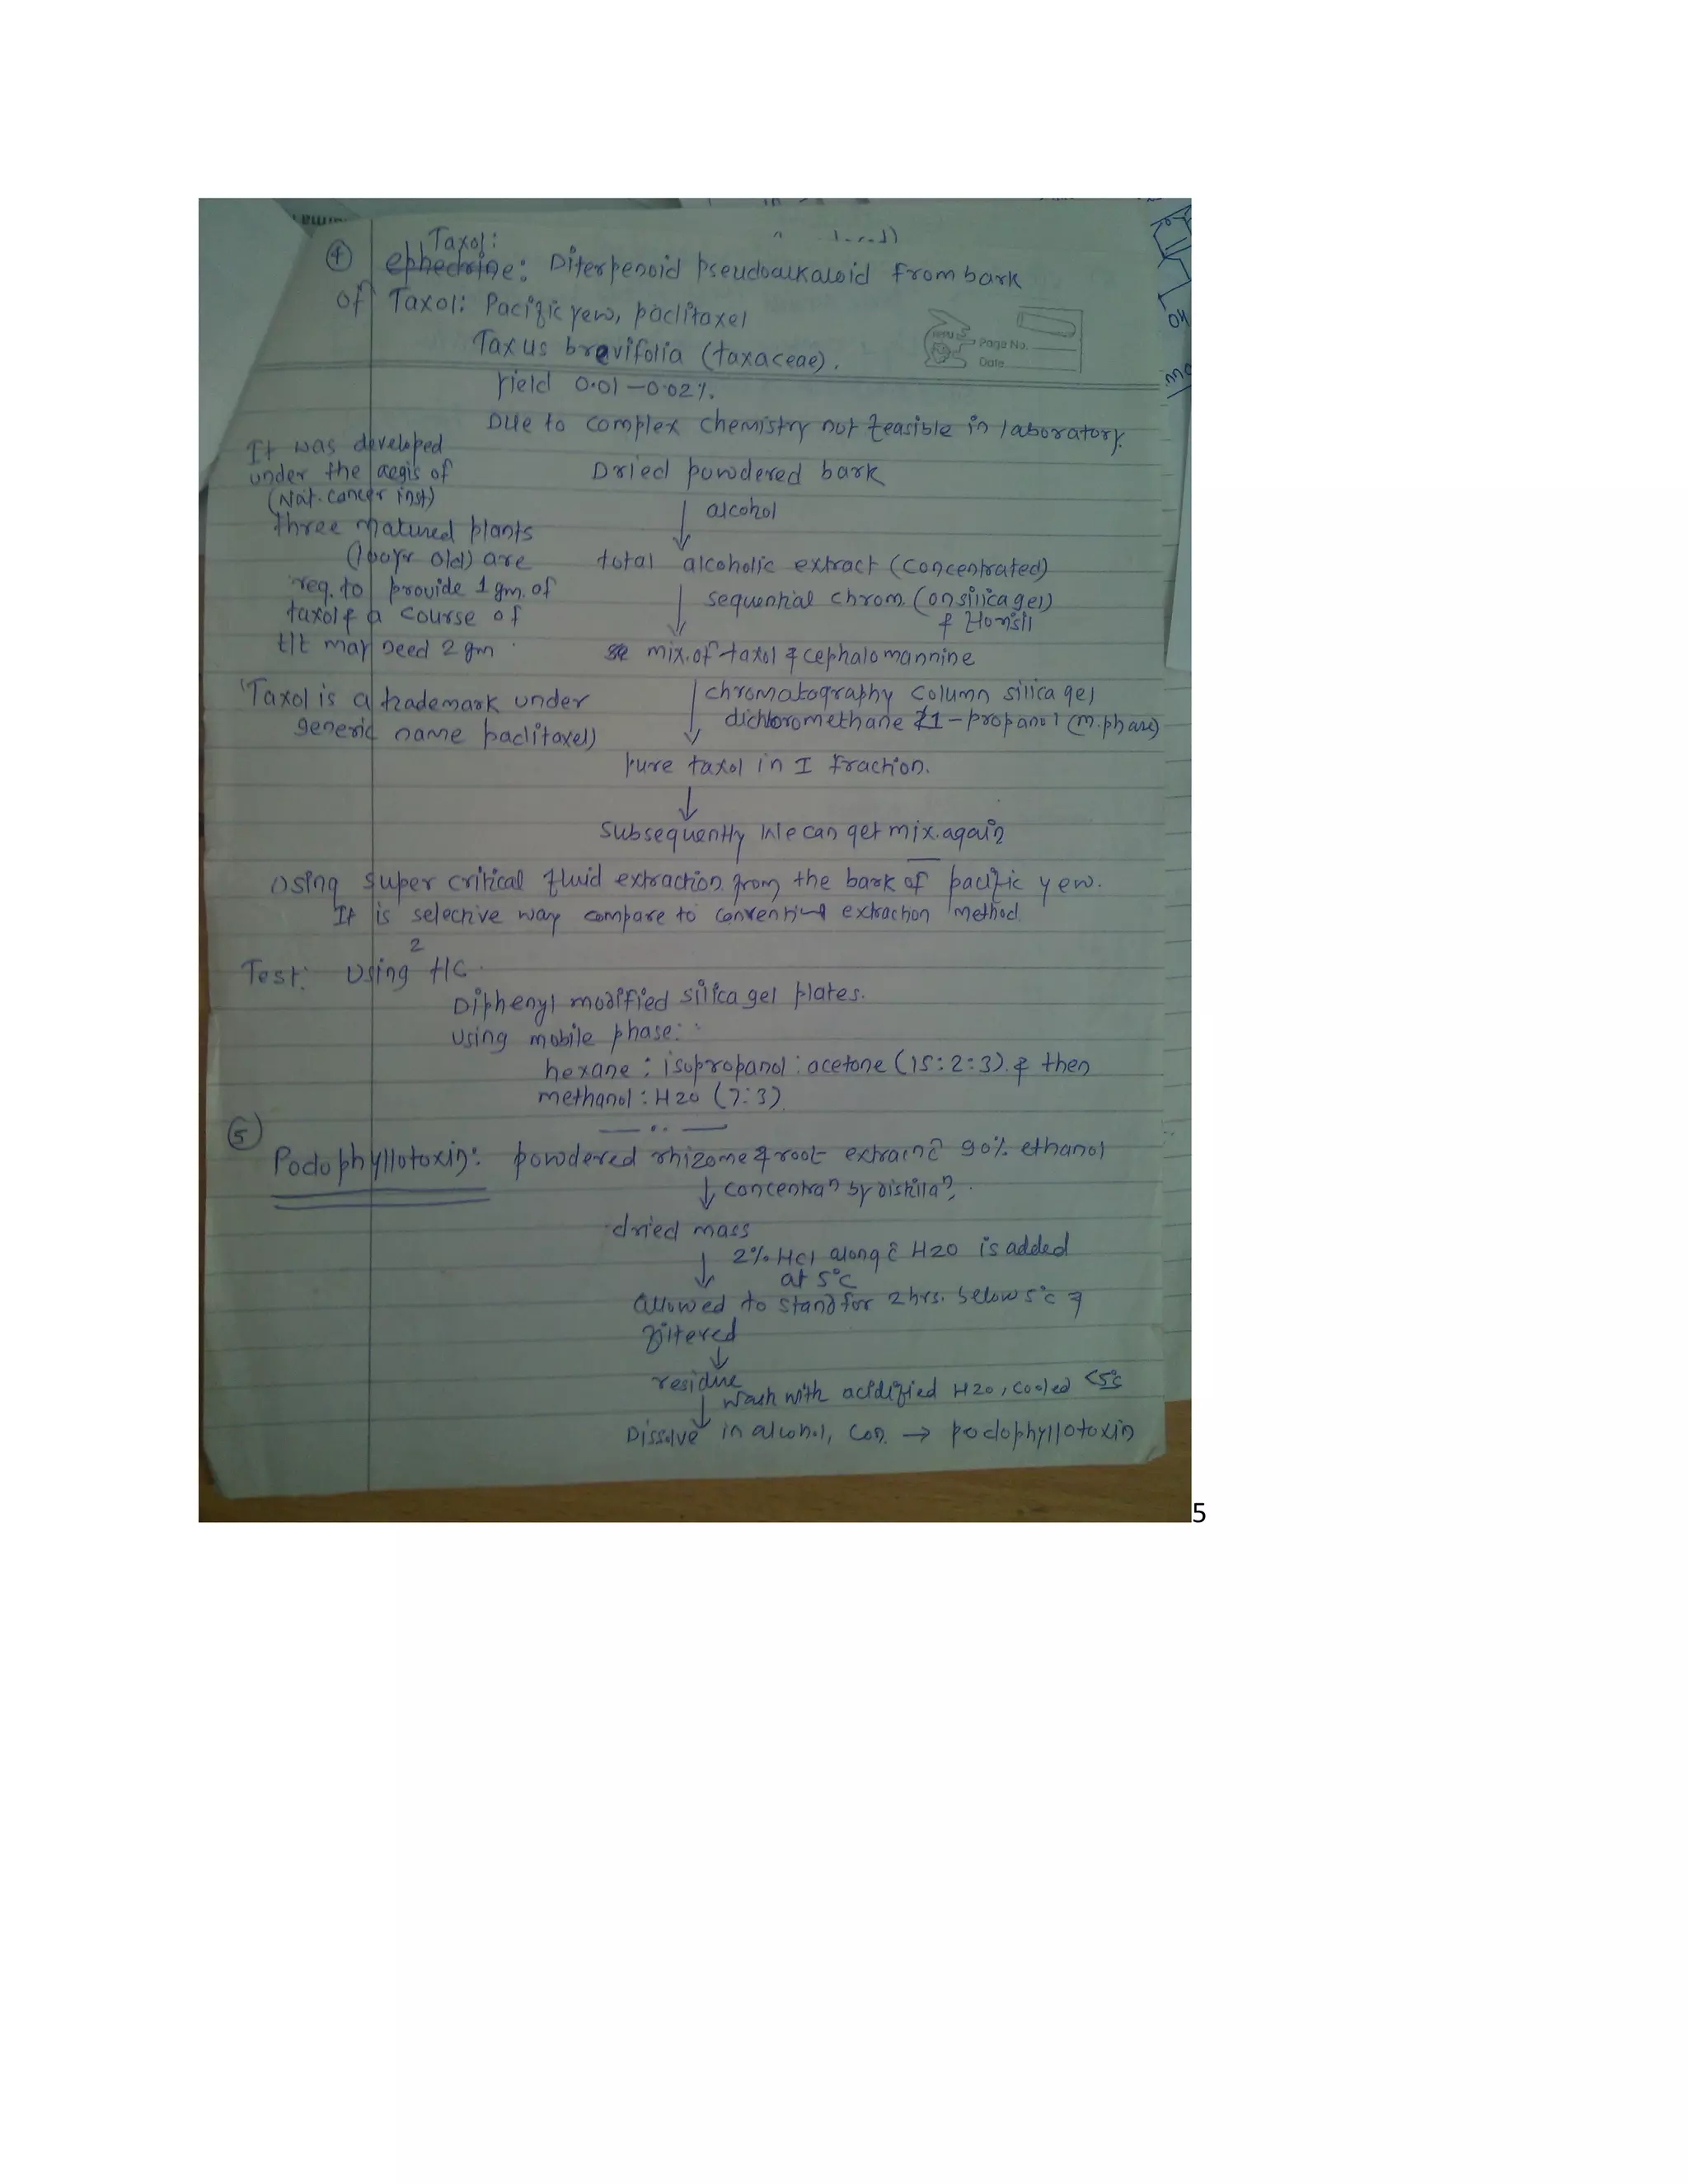 ④ Taxol:
ephedrine: Diterpenoid pseudoalkaloid from bark
of Taxol: Pacific yew, paclitaxel
Page No.
Taxus brevifolia (taxaceae).
Date
Yield 0.01 – 0.02%.
Due to complex chemistry not feasible in laboratory.
It was developed
under the aegis of
(Nat. cancer inst)
three matured plants
(100yr old) are
req. to provide 1 gm. of
taxol & a course of
t/t may need 2 gm.
(Taxol is a trademark under
generic name paclitaxel)
Dried powdered bark
↓ alcohol
total alcoholic extract (concentrated)
↓ sequential chrom. (on silica gel)
mix. of taxol & cephalomannine
↓ chromatography column silica gel
dichloromethane & 1-propanol (m.phase)
Pure taxol in I fraction.
↓
Subsequently we can get mix. again
Using super critical fluid extraction from the bark of pacific yew.
It is selective way compare to extraction method.
Test: Using 2 tlc.
Diphenyl modified silica gel plates.
Using mobile phase:
hexane : isopropanol : acetone (15:2:3). & then
methanol : H2O (7:3).
⑤
Podophyllotoxin: powdered rhizome & root c̄ 90% ethanol
↓ concentraⁿ by distillaⁿ.
dried mass
↓ 2% HCl along c̄ H2O is added
at 5°C
allowed to stand for 2 hrs. below 5°C &
filtered
↓
residue
↓ wash with acidified H2O, cooled <5°c
Dissolve in alcohol, con. → podophyllotoxin
5